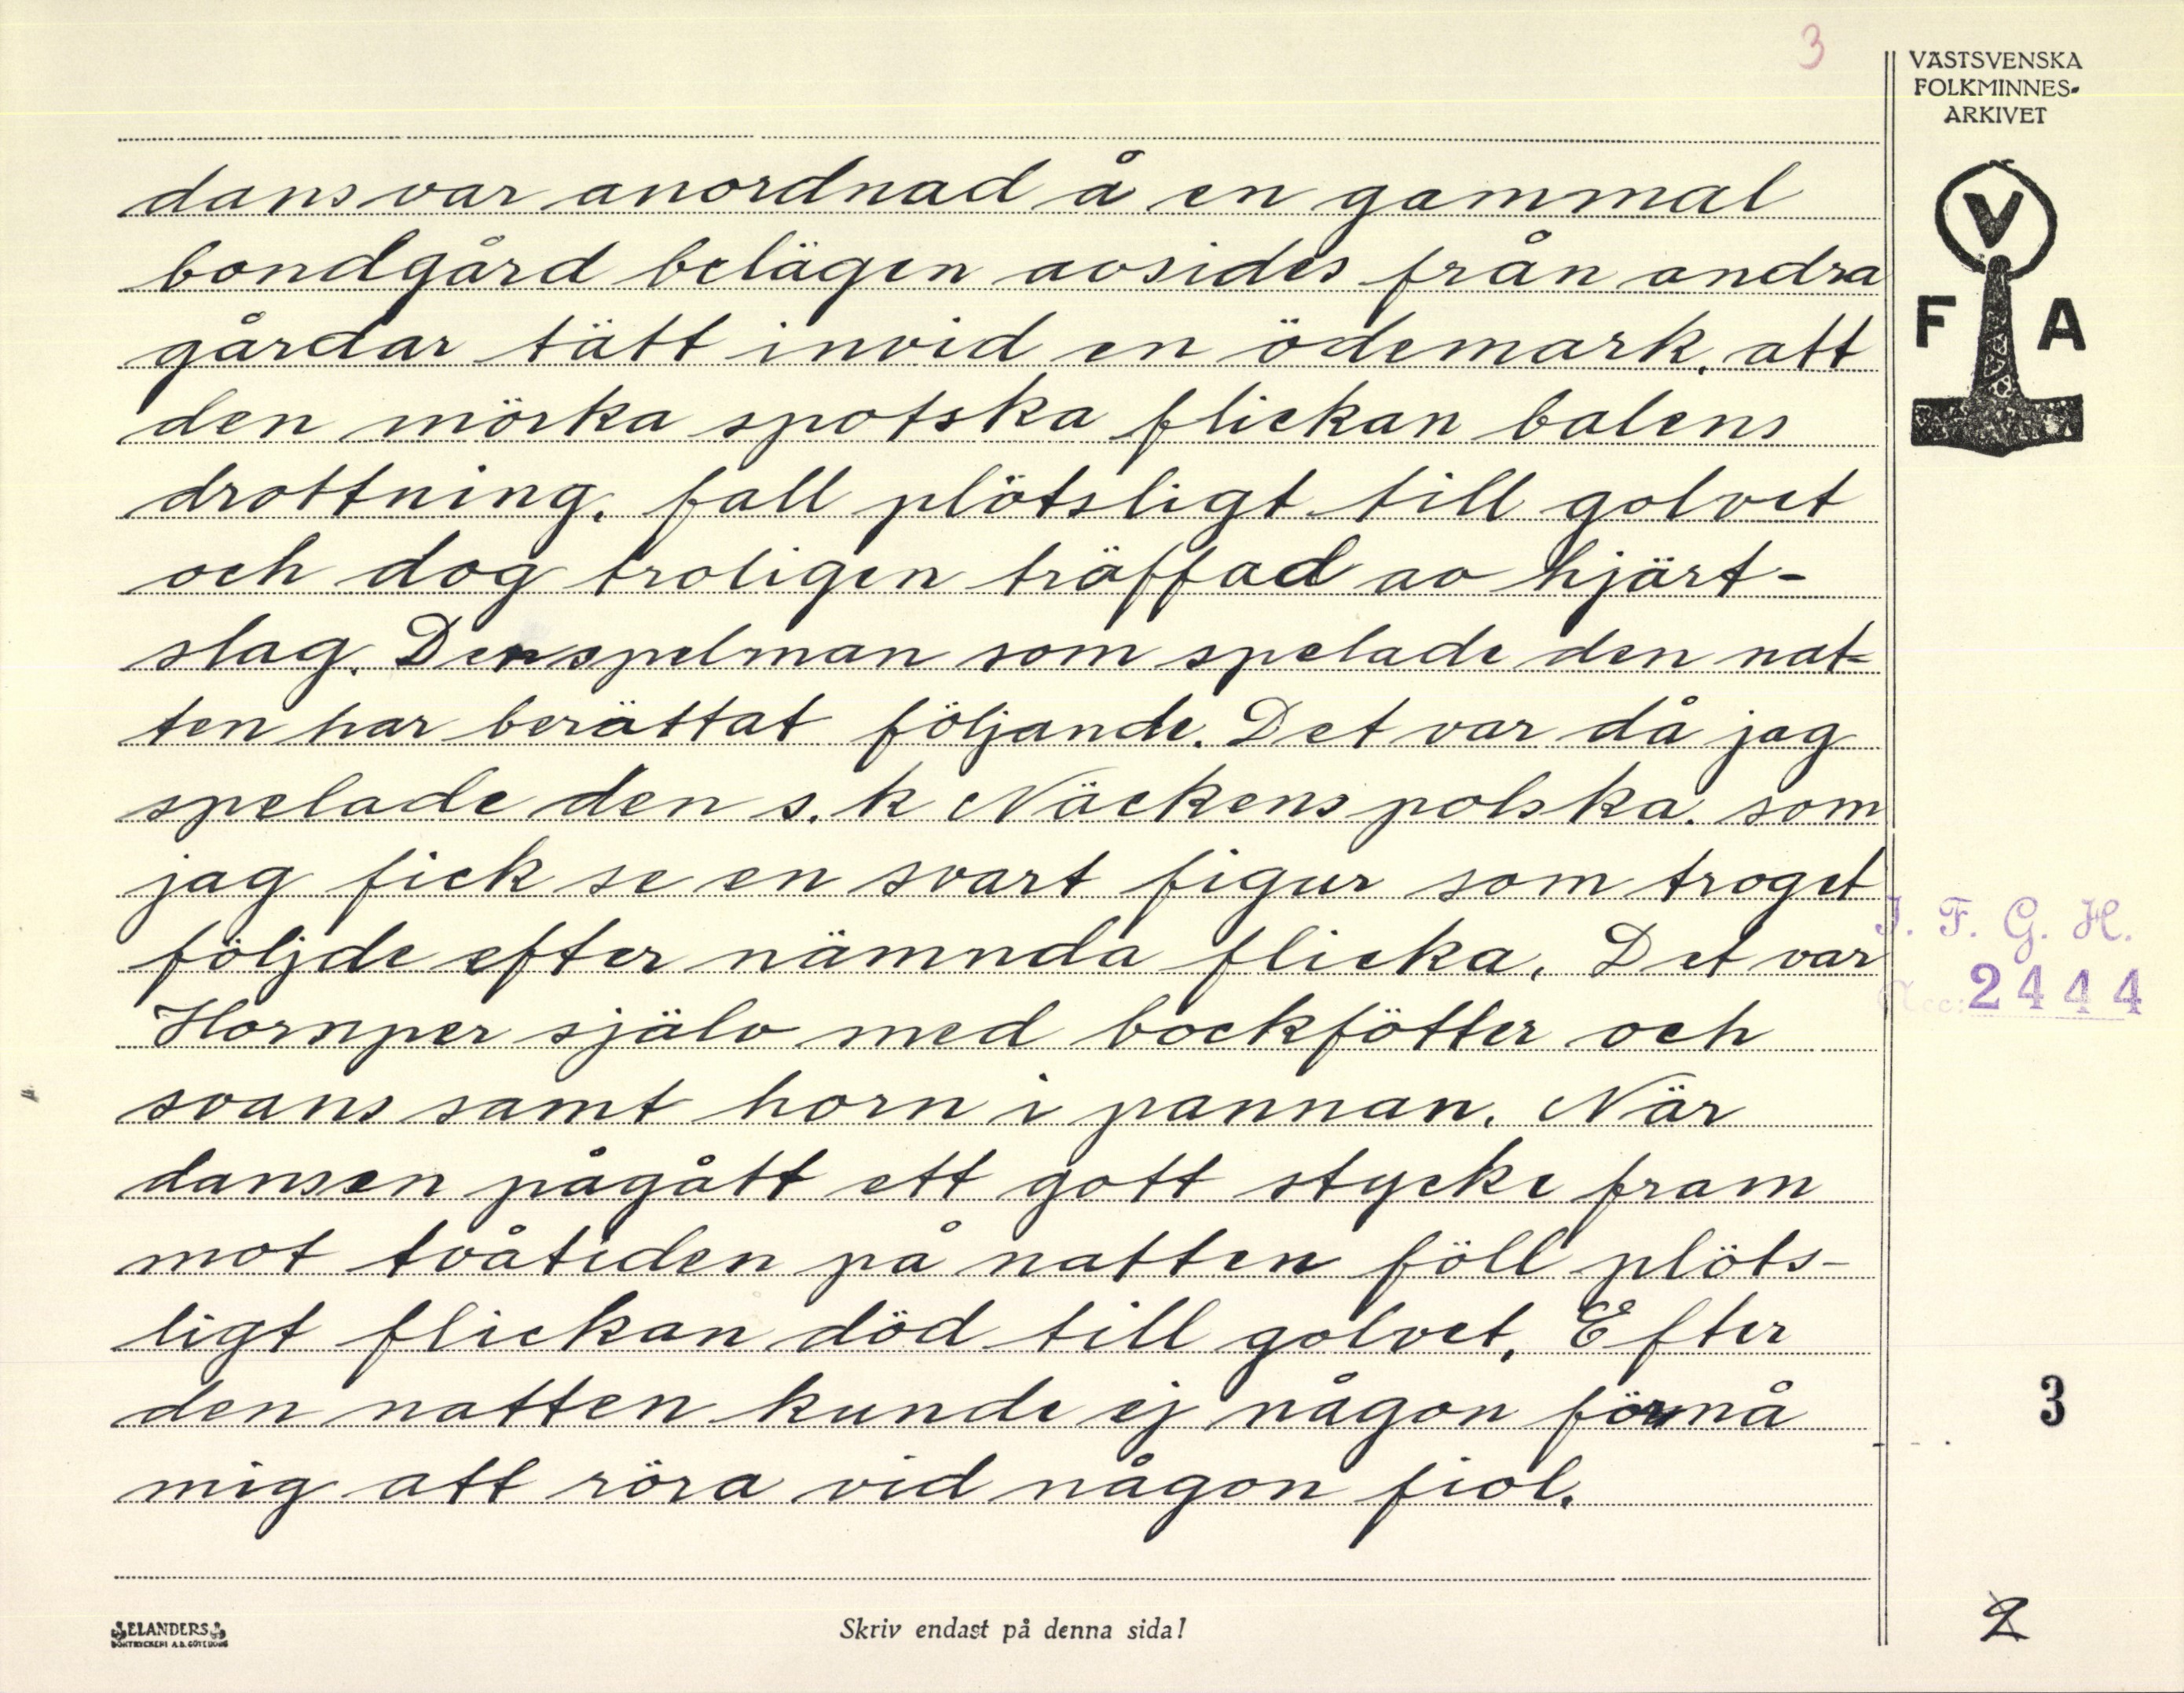 3
VÄSTSVENSKA
FOLKMINNES-
ARKIVET
V
F A
dans var anordnad å en gammal
bondgård belägen avsides från andra
gårdar tätt invid en ödemark, att
den mörka spotska flickan balens
drottning. fall plötsligt till golvet
och dog troligen träffad av hjärt-
slag. Den spelman som spelade den nat-
ten har berättat följande. Det var då jag
spelade den s.k Näckens polska. som
jag fick se en svart figur som troget
följde efter nämnda flicka. Det var
Hornper själv med bockfötter och
svans samt horn i pannan. När
dansen pågått ett gott stycke fram
mot tvåtiden på natten föll plöts-
ligt flickan död till golvet. Efter
den natten kunde ej någon förmå
mig att röra vid någon fiol.
I. F. G. H.
Acc: 2444
3
2
ELANDERS
BOKTRYCKERI A.B. GÖTEBORG
Skriv endast på denna sida!